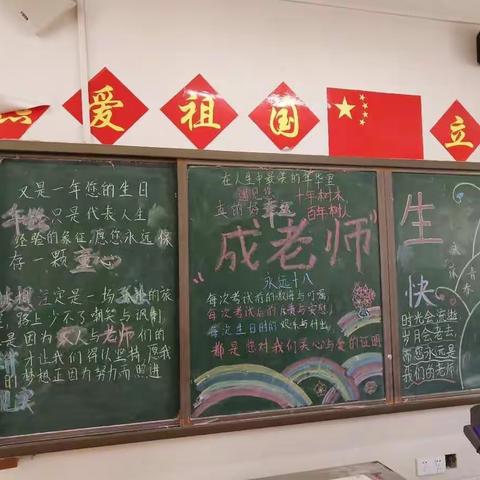 爱
祖
国
立
又是一年您的生日
年龄只是代表人生
经验的象征,愿您永远保
存一颗童心
注定是一场孤独的旅
路上少不了嘲笑与讽刺
是因为家人与老师们的
才让我们得以坚持,愿我
的梦想正因为努力而照进
现实
在人生中最美的年华里
遇见您
真的好幸运
十年树木
百年树人
"成老师"
永远十八
每次考试前的教诲与叮嘱
每次考试后的
每次生日时的
都是您对我们关心与爱的证明
生
快
时光会流逝
岁月会老去
而您永远是
我们的老师
永葆
青春